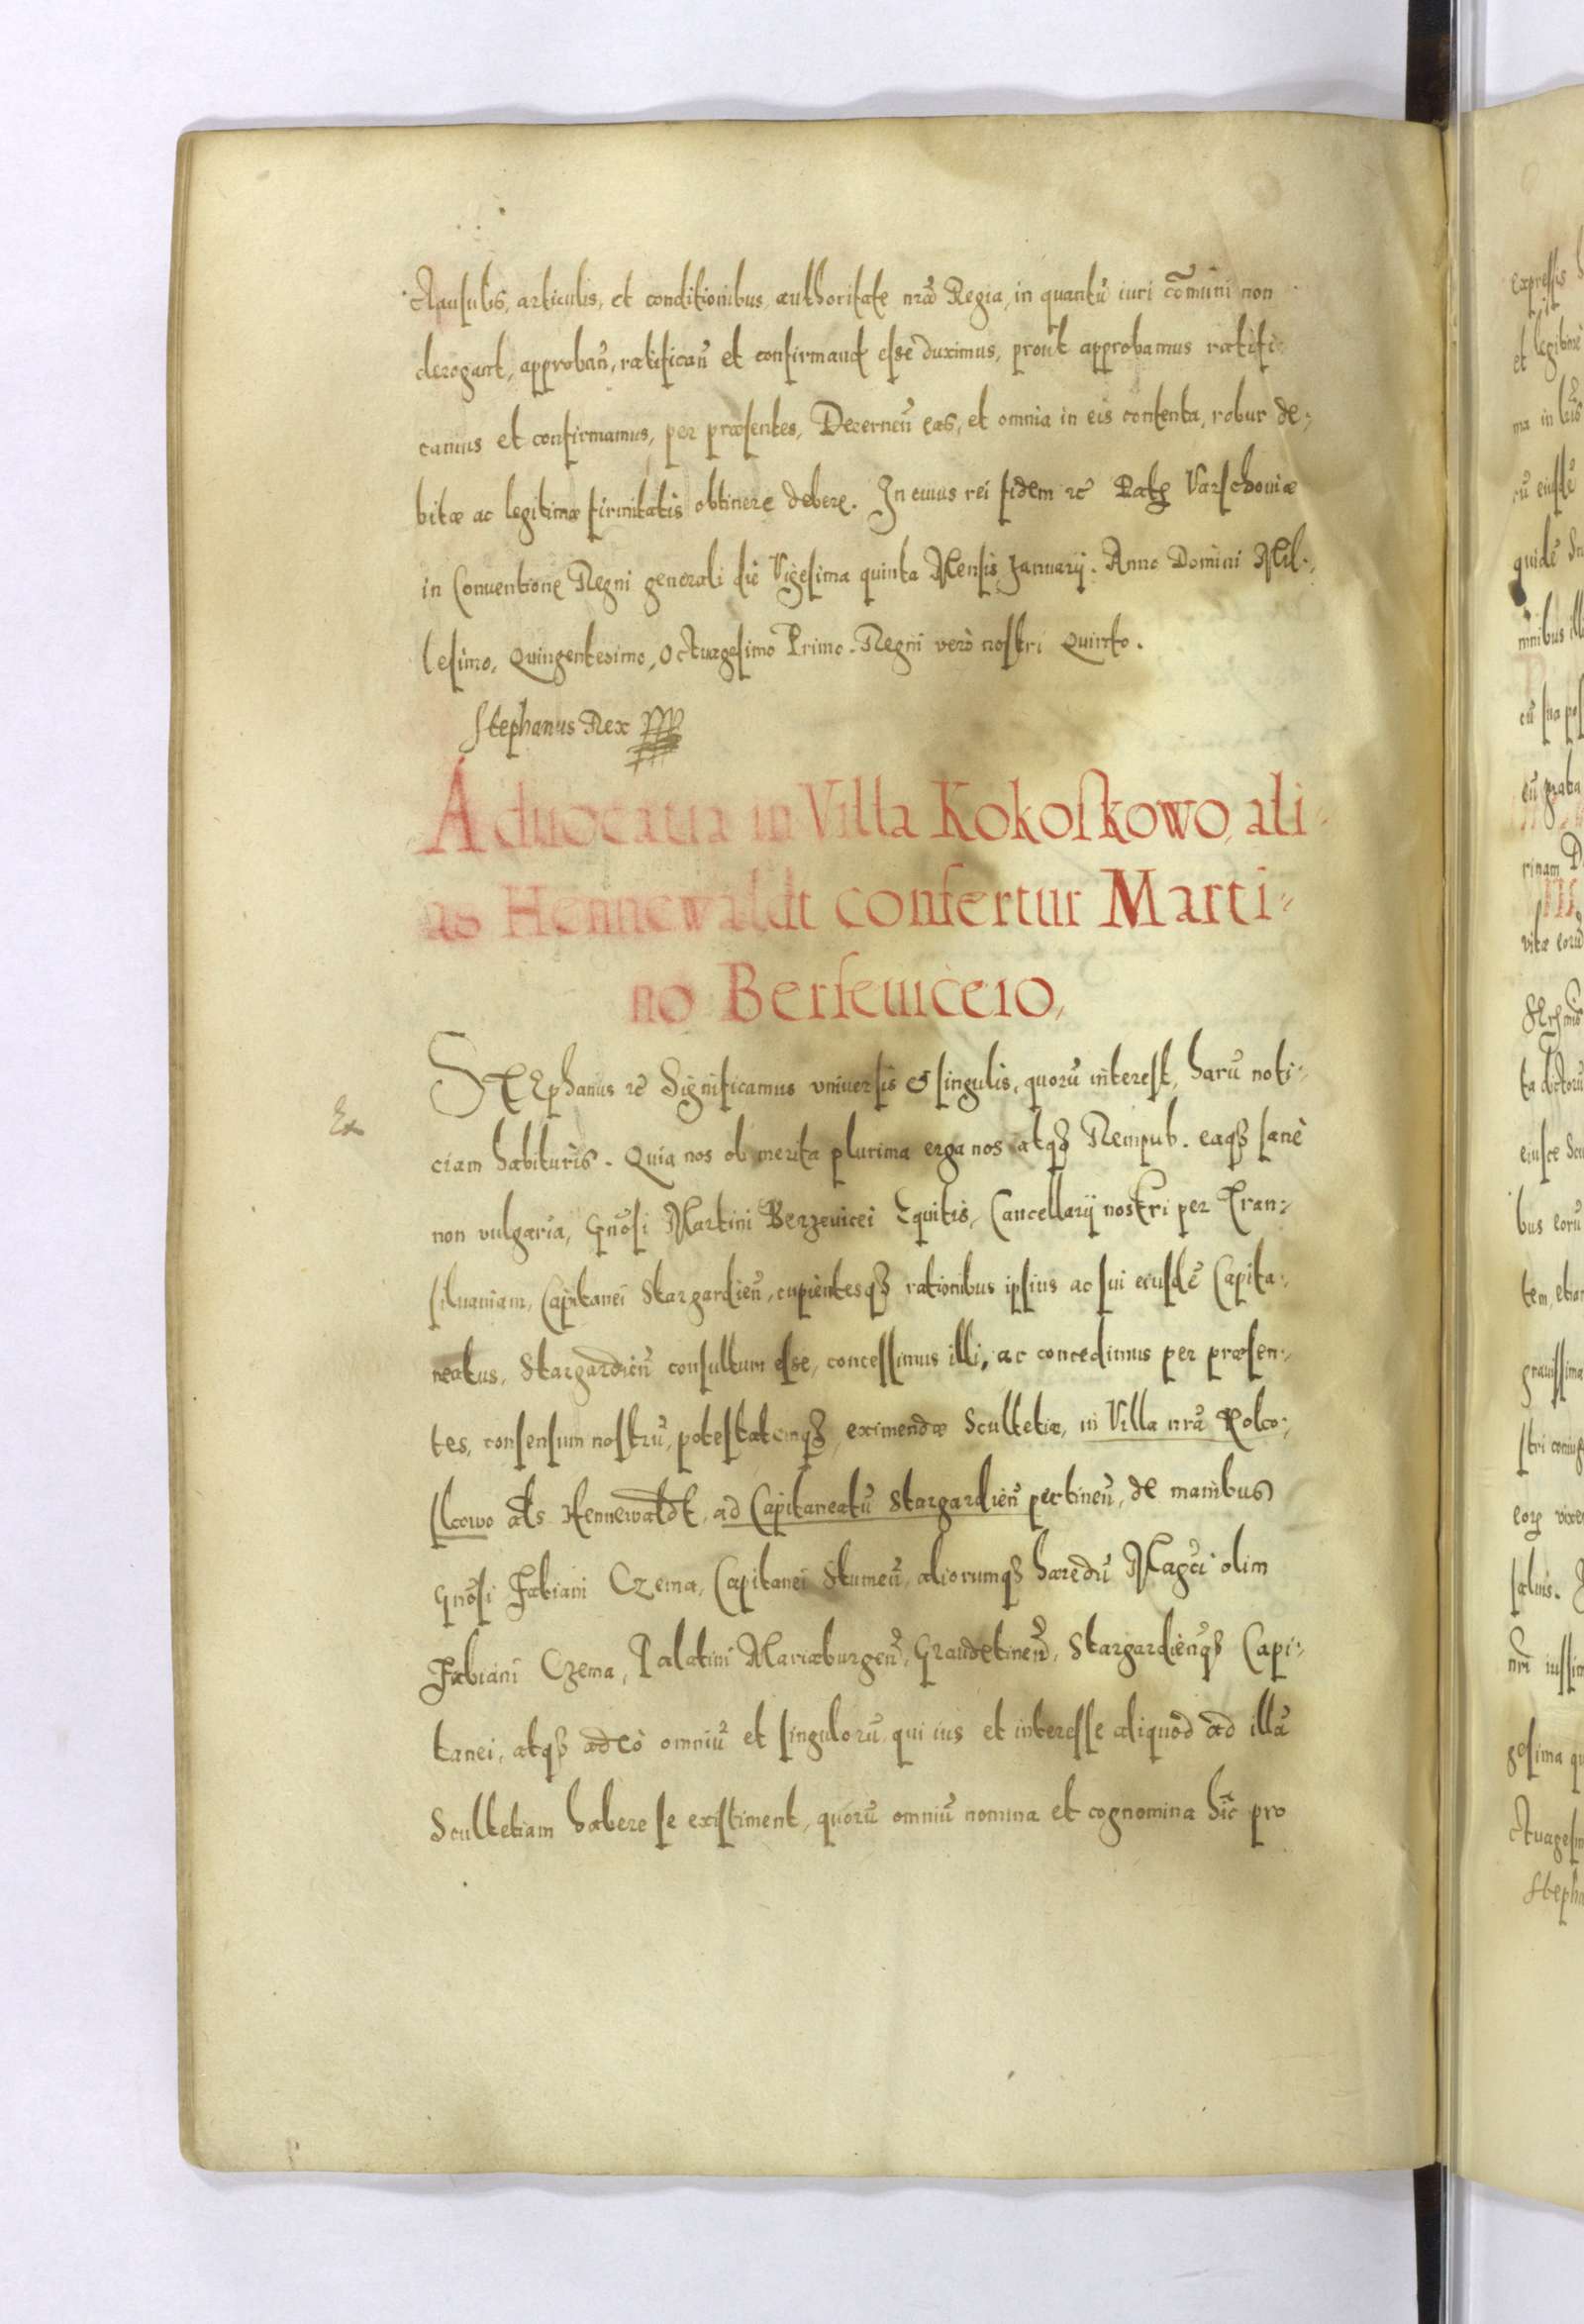 clausulis, articulis, et conditionibus, authoritate nrã Regia, in quantũ iuri cõmuni non
derogant, approbañ, ratificañ et confirmand esse duximus, prout approbamus ratifi-
camus et confirmamus, per præsentes, Decerneñ eas, et omnia in eis contenta, robur de-
bitæ ac legitimæ firmitatis obtinere debere. In cuius rei fidem etc Dat Varschouiæ
in Conuentione Regni generali die Vigesima quinta Mensis Januarij. Anno Domini Mil-
lesimo, Quingentesimo, Octuagesimo Primo. Regni verò nostri Quinto.
Stephanus Rex
Aduocatia in Villa Kokoskowo, ali-
as Hennewaldt confertur Marti-
no Berseuiceio,
STEphanus etc Significamus vniuersis et singulis, quorũ interest, harũ noti-
ciam habituris. Quia nos ob merita plurima erga nos atqȝ Rempub. eaqȝ sanè
non vulgaria, Gnõsi Martini Berzeuicei Equitis, Cancellarij nostri per Tran-
siluaniam, Capitanei Stargardieñ, cupientesqȝ rationibus ipsius ac sui eiusdẽ Capita-
neatus, Stargardieñ consultum esse, concessimus illi, ac concedimus per præsen-
tes, consensum nostrũ, potestatemqȝ, eximendæ Scultetiæ, in Villa nrã Koko-
skowo als Hennewaldt, ad Capitaneatũ Stargardieñ pertineñ, de manibus
Gnõsi Fabiani Czema, Capitanei Stumeñ, aliorumqȝ hæredũ Magci olim
Fabiani Czema, Palatini Mariæburgeñ, Graudetineñ, Stargardieñqȝ Capi-
tanei, atqȝ adeò omniũ et singulorũ, qui ius et interesse aliquod ad illã
Scultetiam habere se existiment, quorũ omniũ nomina et cognomina hic pro